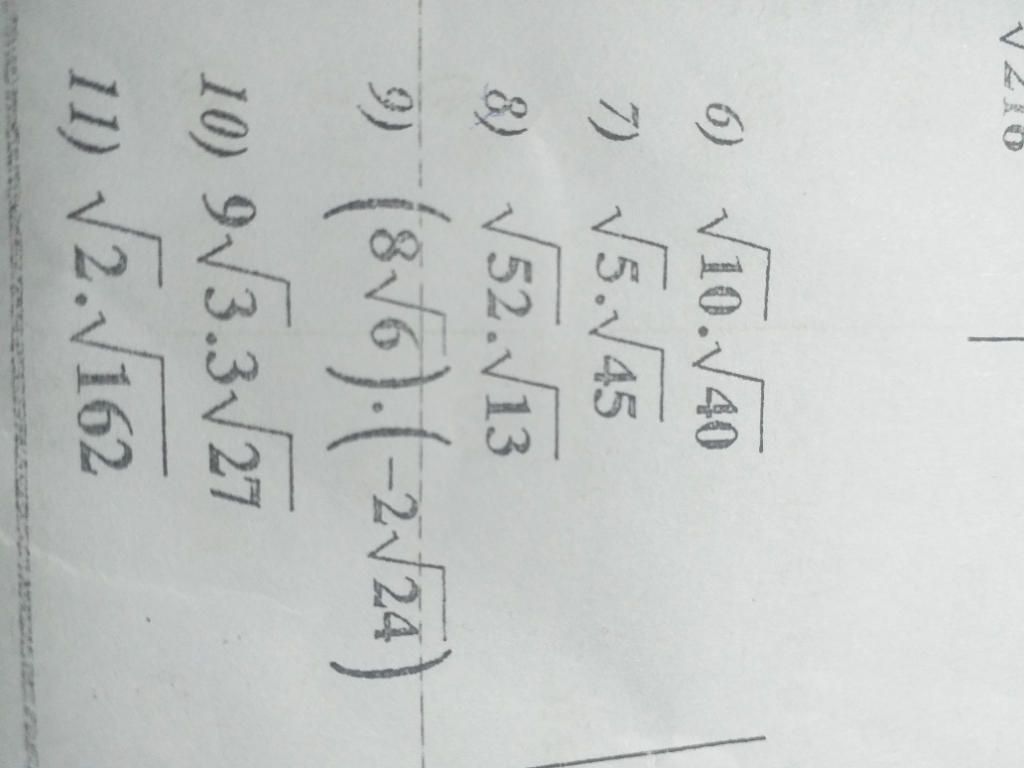 √216
6) √10.√40
7) √5.√45
8) √52.√13
9) (8√6).(−2√24)
10) 9√3.3√27
11) √2.√162